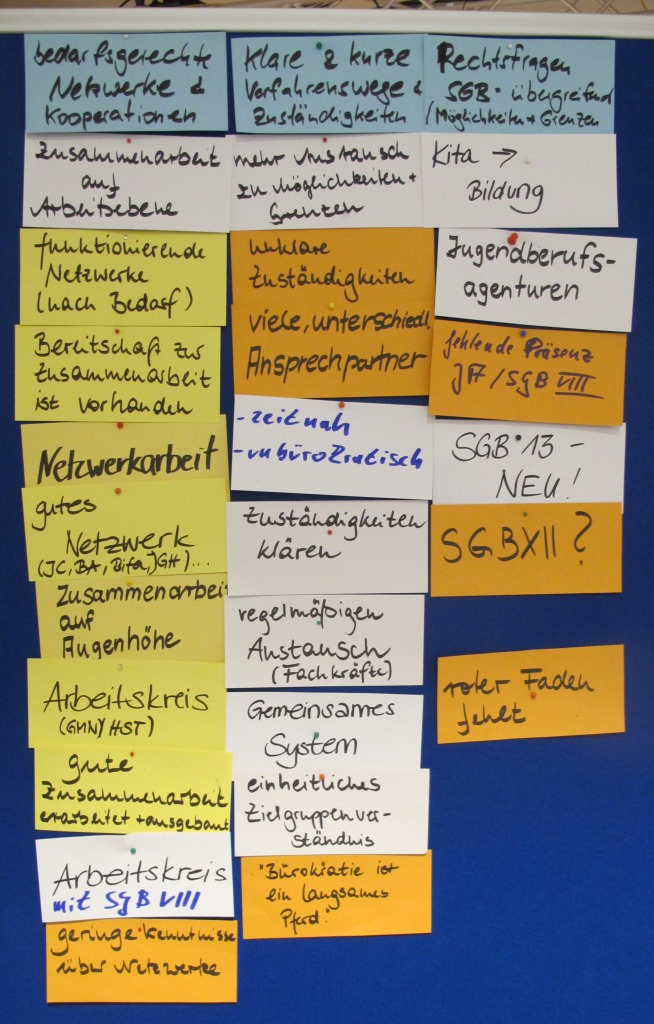 bedarfsgerechte
Netzwerke &
Kooperationen
Zusammenarbeit
auf
Arbeitsebene
funktionierende
Netzwerke
(nach Bedarf)
Bereitschaft zur
Zusammenarbeit
ist vorhanden
Netzwerkarbeit
gutes
Netzwerk
(JC, BA, Bifa, JGH)...
Zusammenarbei
auf
Augenhöhe
Arbeitskreis
(GMN/HST)
gute
Zusammenarbeit
erarbeitet + ausgebaut
Arbeitskreis
mit SGB VIII
geringe Kenntnisse
über Netzwerke
Klare & kurze
Verfahrenswege &
Zuständigkeiten
mehr Austausch
zu Möglichkeiten +
Grenzen
unklare
Zuständigkeiten
viele, unterschiedl.
Ansprechpartner
- zeitnah
- unbürokratisch
Zuständigkeiten
klären
regelmäßigen
Austausch
(Fachkräfte)
Gemeinsames
System
einheitliches
Zielgruppenver-
ständnis
"Bürokratie ist
ein langsames
Pferd."
Rechtsfragen
SGB-übergreifend
/Möglichkeiten + Grenzen
Kita →
Bildung
Jugendberufs-
agenturen
fehlende Präsenz
/SGB VIII
SGB 13 -
NEU!
SGB XII ?
roter Faden
fehlt